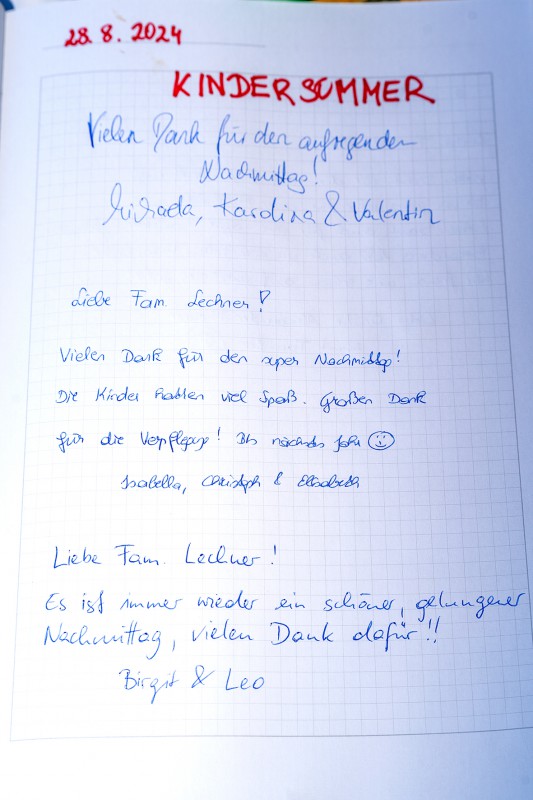 28.8.2024
KINDERSOMMER
Vielen Dank für den aufregenden
Nachmittag!
Karolina & Valentin
Liebe Fam. Lechner!
Vielen Dank für den super Nachmittag!
Die Kinder hatten viel Spaß. Großen Dank
für die Verpflegung! Bis nächstes Jahr ☺
Isabella, Christoph & Elisabeth
Liebe Fam. Lechner!
Es ist immer wieder ein schöner, gelungener
Nachmittag, vielen Dank dafür!!
Birgit & Leo